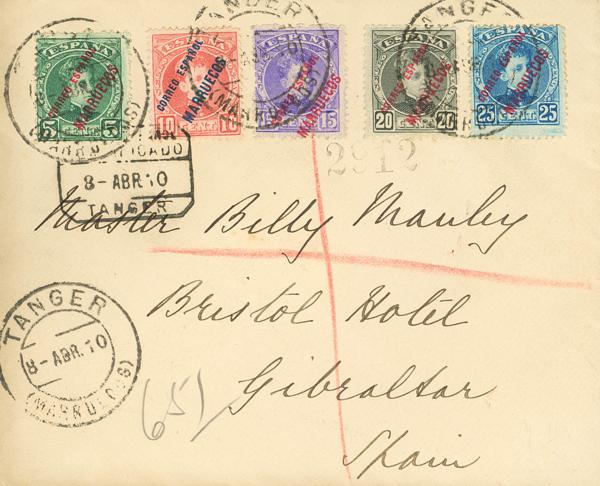 TANGER
TANGER
ESPAÑA
ESPAÑA
ESPAÑA
ESPAÑA
ESPAÑA
CORREO ESPAÑOL
MARRUECOS
CORREO ESPAÑOL
MARRUECOS
CORREO ESPAÑOL
MARRUECOS
CORREO ESPAÑOL
MARRUECOS
CORREO ESPAÑOL
MARRUECOS
5 CENT. 5
10 CENT. 10
CENT. 15
20 CENT. 20
25 CENT. 25
(MARRUECOS)
8-ABR.10
TANGER
2912
Master Billy Manley
Bristol Hotel
Gibraltar
Spain
TANGER
8-ABR.10
(MARRUECOS)
651